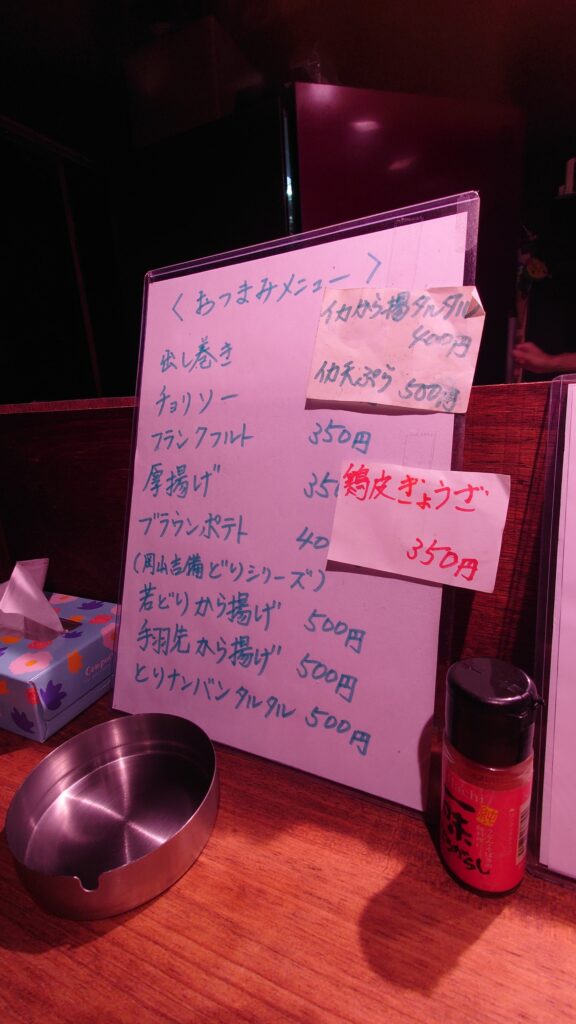 〈おつまみメニュー〉
出し巻き
チョリソー
フランクフルト 350円
厚揚げ 35
ブラウンポテト 40
(岡山吉備どりシリーズ)
若どりから揚げ 500円
手羽先から揚げ 500円
とりナンバンタルタル 500円
イカから揚タルタル
400円
イカ天ぷら 500円
鶏皮ぎょうざ
350円
一味